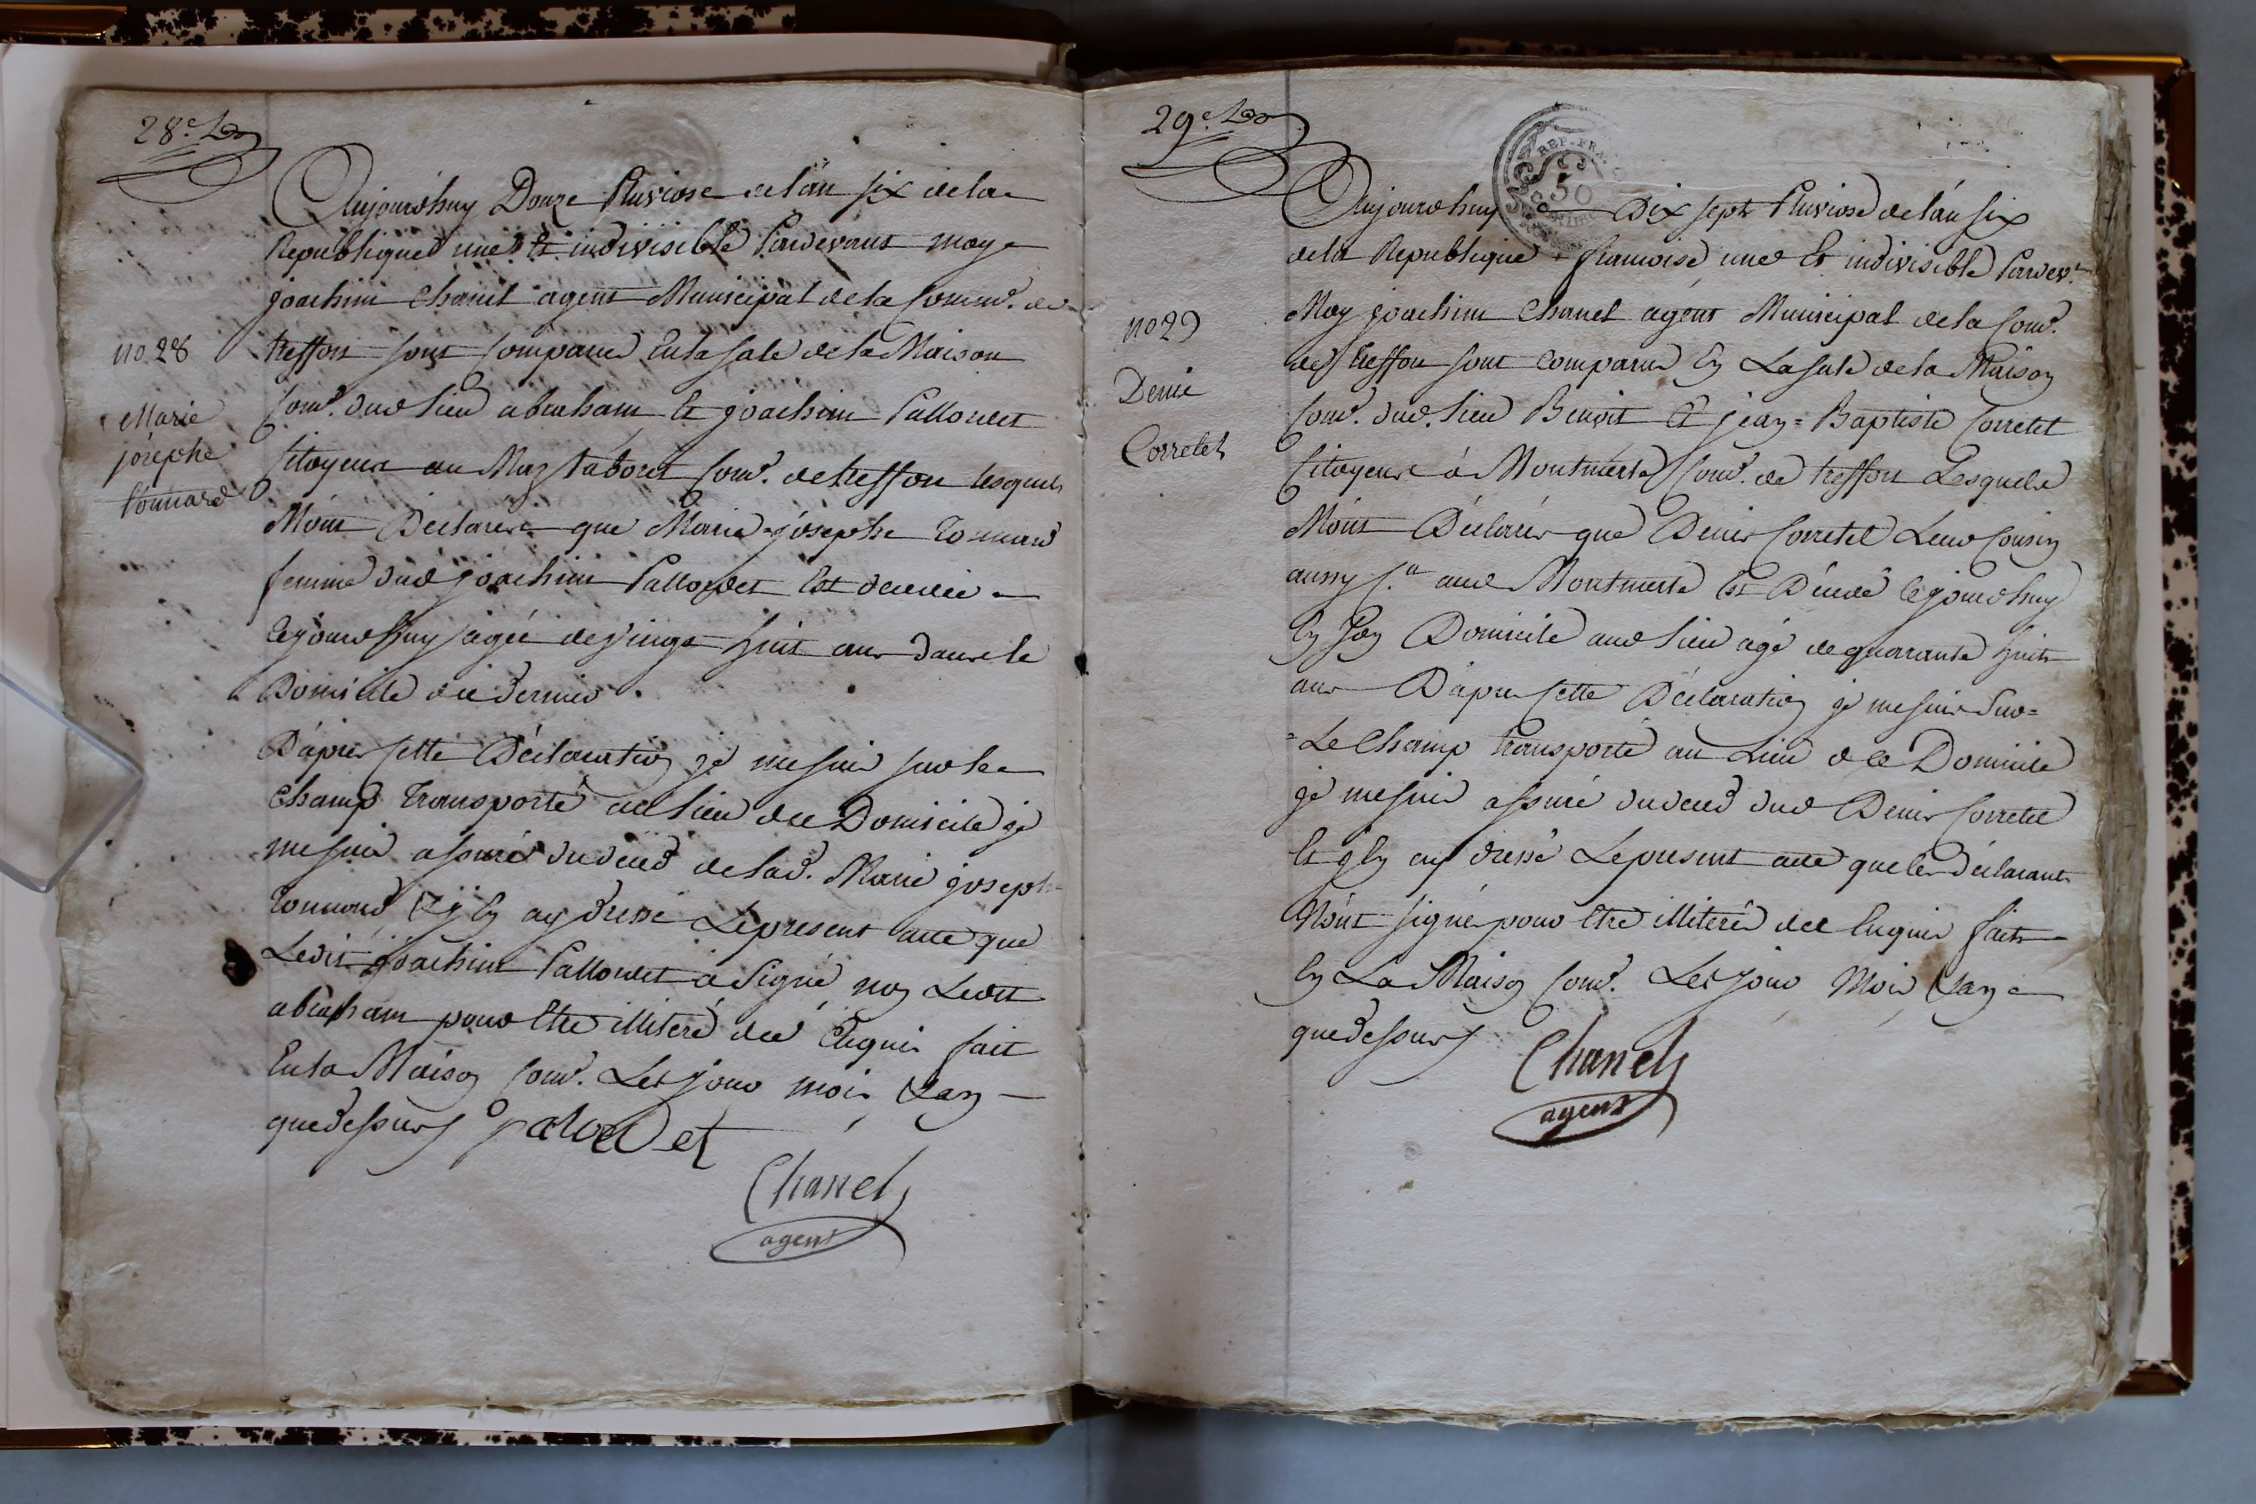 28e
Aujourdhuy Douze Pluviose de lan six de la
Republique une & indivisible Pardevant moy
joachim Chanel agent Municipal de la Comm. de
treffort sont comparus En la sale de la Maison
Com. dud lieu abraham & joachim Palloudet
Citoyens au Maz Com. de treffort lesquels
M'ont Déclarer que Marie josephe Tonnard
femme dud joachim Palloudet Est decedée
Cejourdhuy agée de vingt huit ans dans le
Domicile de dernier
D'apres sette Déclaration je me suis sur le
Champ transporté au lieu de ce Domicile je
me suis assuré du deces de lad. Marie joseph
Tonnard & j'En ay dressé Le present acte que
Ledit joachim Palloudet à signé non Ledit
abraham pour Etre illiteré de ce Enquis fait
En la Maison Com. Les jour mois & an
que dessus palloudet
Chanel
agent
no 28
Marie
josephe
Tonnard
29e
REP. FRA
50
CENTIMES
Aujourdhuy Dix sept Pluviose de l'an six
de la Republique francoise une & indivisible Pardevt
Moy joachim Chanel agent Municipal de la Com.
de treffort sont comparus En La sale de la Maison
Com. dud. lieu Benoit & jean=Baptiste Corretel
Citoyens à Montmerle Com. de treffort Lesquels
M'ont Déclarer que Denis Corretel Leur Cousin
aussy C.en aud Montmerle Est Décedé Cejourdhuy
En Son Domicile aud lieu agé de quarante huit
ans D'apres sette Déclaration je me suis Sur=
=Le Champ transporté au Lieu de ce Domicile
je me suis assuré du deces dud Denis Corretel
& j'En ay dressé Le present acte que les déclarants
N'ont signé pour Etre illiterés de ce Enquis fait
En La Maison Com. Les jour Mois & an
que dessus
Chanel
agent
no 29
Denis
Corretel